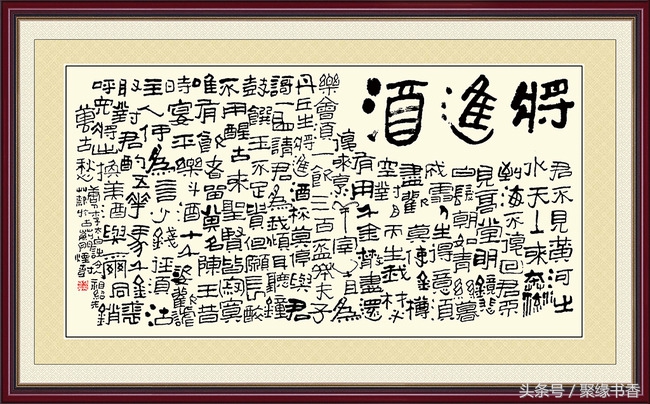 將進酒
君不見黃河之
水天上來奔流
到海不復回君不
見高堂明鏡悲
白髮朝如青絲暮
成雪人生得意須
盡歡莫使金樽
空對月天生我材必
有用千金散盡還
復來烹羊宰牛且為
樂會須一飲三百盃岑夫子
丹丘生將進酒杯莫停與君
歌一曲請君為我傾耳聽鐘
鼓饌玉不足貴但願長醉
不用醒古來聖賢皆寂寞
唯有飲者留其名陳王昔
時宴平樂斗酒十千恣歡謔
主人何為言少錢徑須沽
取對君酌五華馬千金裘
呼兒將出換美酒與爾同銷
萬古愁
头条号 / 聚缘书香